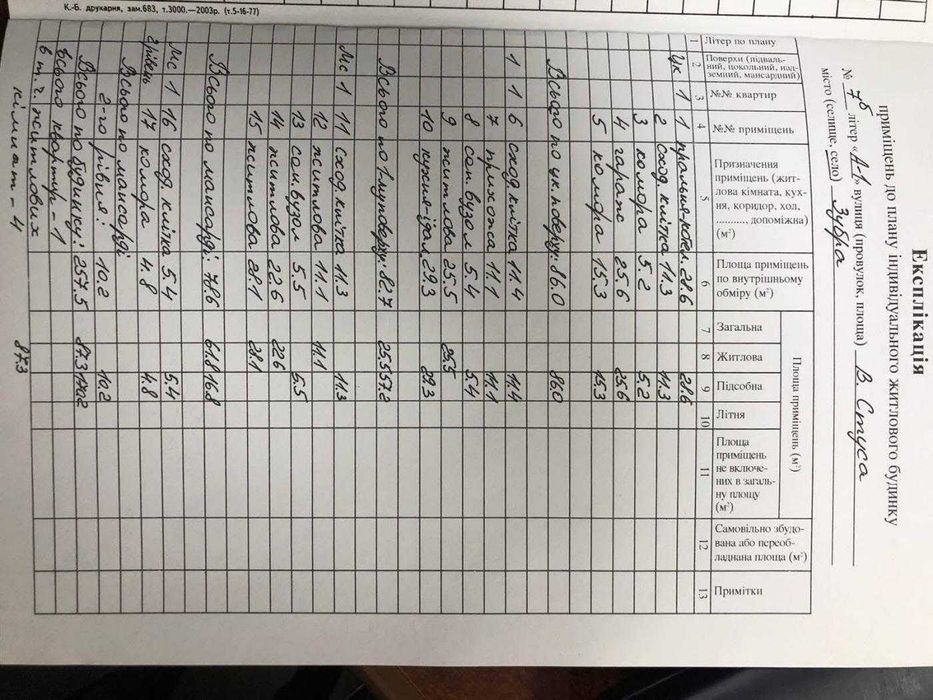 К.-Б. друкарня, зам.683, т.3000.—2003р. (т.5-16-77)
Експлікація
приміщень до плану індивідуального житлового будинку
№ 7б літер «А-1» вулиця (провулок, площа) В. Стуса
місто (селище, село) Зубра
Літер по плану
Поверхи (підвальний, цокольний, надземний, мансардний)
№№ квартир
№№ приміщень
Призначення приміщень (житлова кімната, кухня, коридор, хол, .........., допоміжна) (м²)
Площа приміщень по внутрішньому обміру (м²)
Площа приміщень (м²)
Загальна
Житлова
Підсобна
Літня
Площа приміщень не включених в загальну площу (м²)
Самовільно збудована або переобладнана площа (м²)
Примітки
1 2 3 4 5 6 7 8 9 10 11 12 13
Цк 1 1 пральня-котел. 28.6 28.6
2 сход. клітка 11.3 11.3
3 комора 5.2 5.2
4 гараж 25.6 25.6
5 комора 15.3 15.3
Всього по цк. поверху: 86.0 86.0
1 1 6 сход. клітка 11.4 11.4
7 прихожа 11.1 11.1
8 сан. вузол 5.4 5.4
9 житлова 25.5 25.5
10 кухня-їдал. 29.3 29.3
Всього по 1му поверху: 82.7 25.5 57.2
Мс 1 11 сход. клітка 11.3 11.3
12 житлова 11.1 11.1
13 сан. вузол 5.5 5.5
14 житлова 22.6 22.6
15 житлова 28.1 28.1
Всього по мансарді: 78.6 61.8 16.8
Мс 1 16 сход. клітка 5.4 5.4
2 рівень 17 комора 4.8 4.8
Всього по мансарді
2-го рівня: 10.2 10.2
Всього по будинку: 257.5 87.3 170.2
Всього квартир - 1
в т.ч. житлових 87.3
кімнат - 4